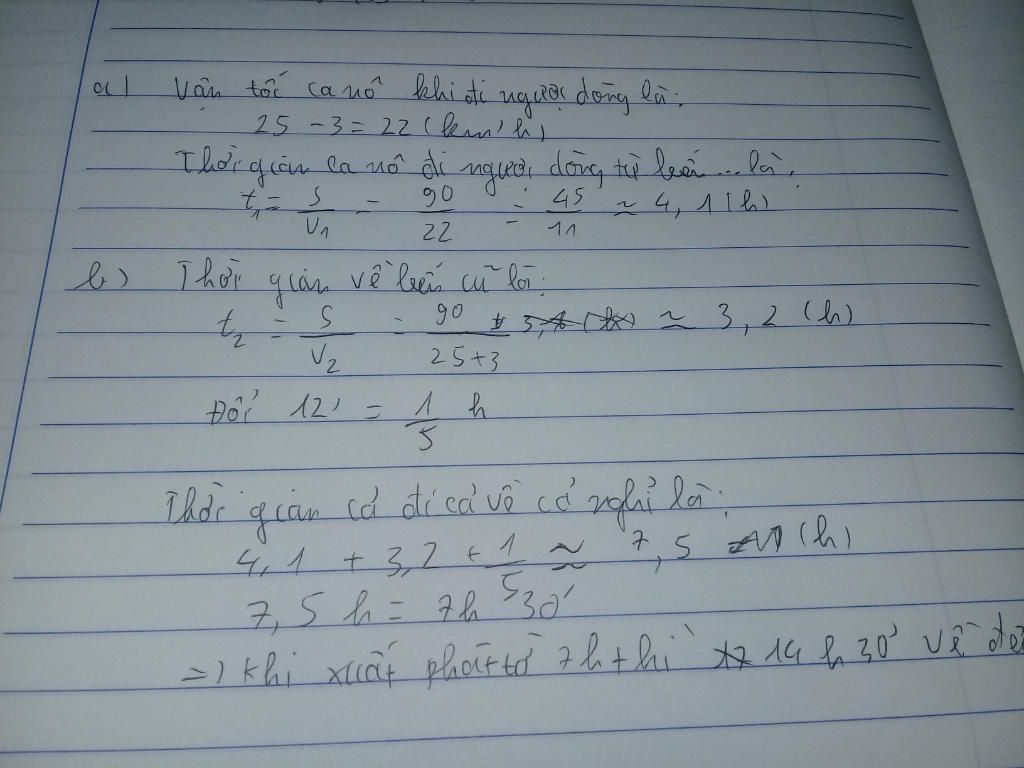 a) Vận tốc ca nô khi đi ngược dòng là:
25 - 3 = 22 (km/h)
Thời gian ca nô đi ngược dòng từ bến ... là:
t₁ = S/V₁ = 90/22 = 45/11 ≈ 4,1 (h)
b) Thời gian về bến cũ là:
t₂ = S/V₂ = 90/25+3 ≈ 3,2 (h)
Đổi 12' = 1/5 h
Thời gian cả đi cả về cả nghỉ là:
4,1 + 3,2 + 1/5 ≈ 7,5 (h)
7,5 h = 7h 30'
=) Khi xuất phát từ 7h thì 14 h 30' về